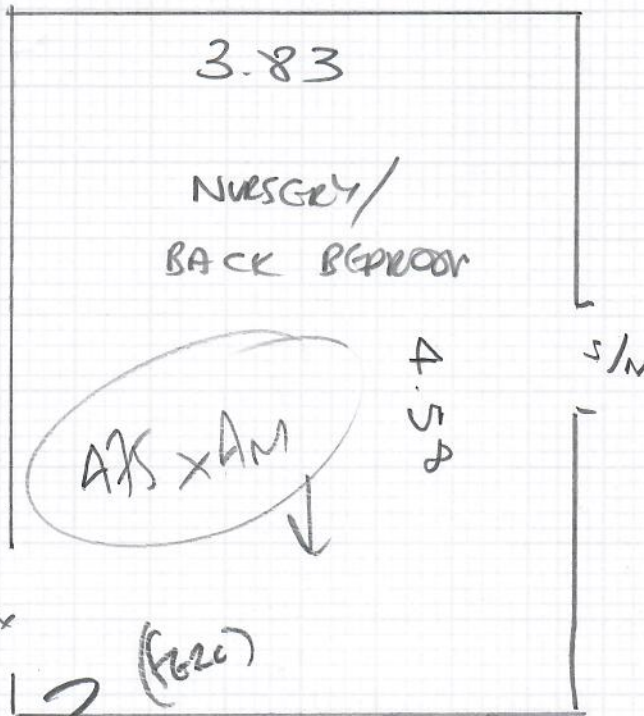 3.83
NURSERY/
BACK BEDROOM
4.58
S/N
475 x 4M
2